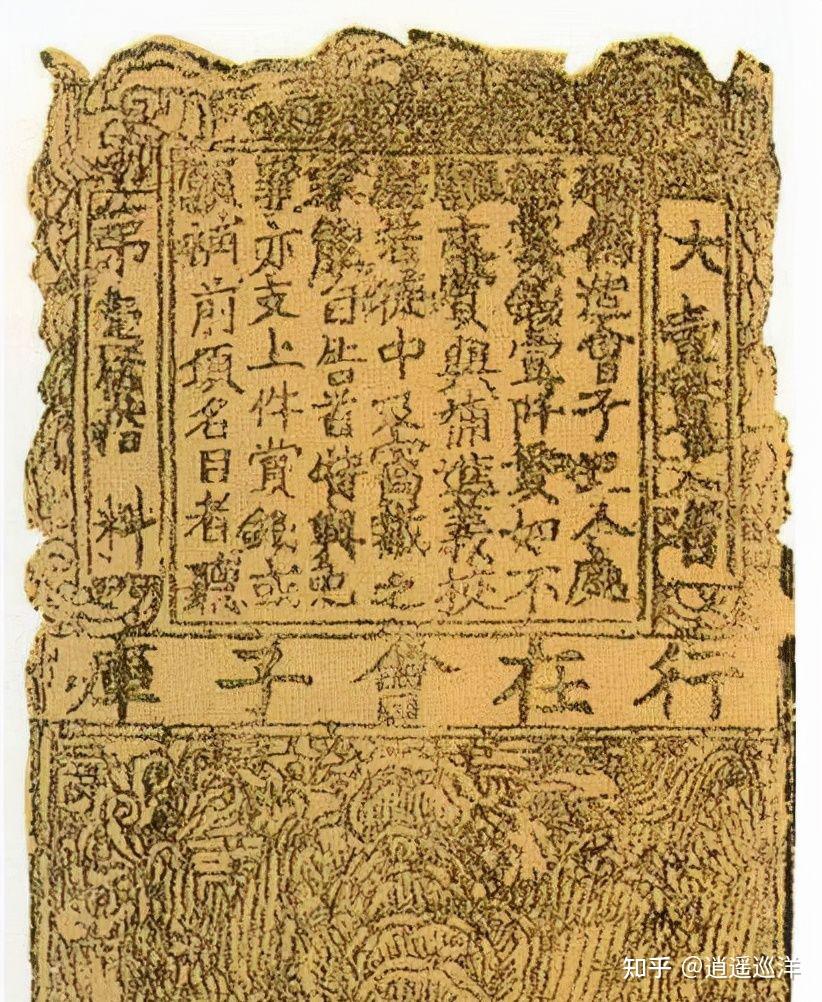 大壹貫文省
敕偽造會子犯人處
斬賞錢壹阡貫如不
願支賞與補進義校
尉若徒中及窩藏之
家能自告首特與免
罪亦支上件賞錢或
願補前項名目者聽
第壹佰拾料
行在會子庫
知乎 @逍遥巡洋